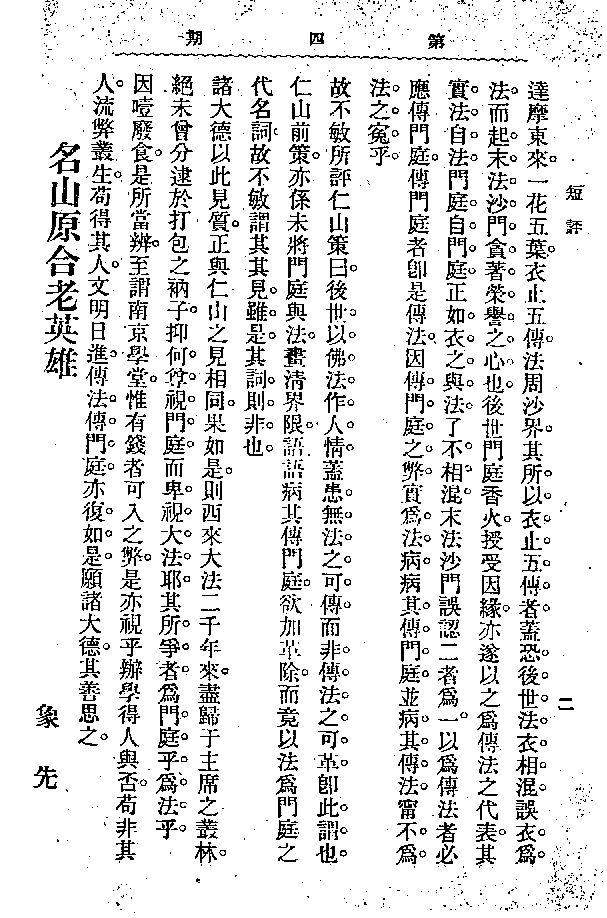 第四期
短評
二
達摩東來。一花五葉。衣止五傳法周沙界其所以衣止五傳者蓋恐後世法衣相混誤衣爲
法而起末法沙門貪著榮譽之心也後世門庭香火授受因緣亦遂以之爲傳法之代表其
實法自法門庭自門庭正如衣之與法了不相混末法沙門誤認二者爲一以爲傳法者必
應傳門庭傳門庭者卽是傳法。因傳門庭之弊實爲法病病其傳門庭並病其傳法甯不爲
法之寃乎
故不敏所評仁山策曰後世以佛法作人情蓋患無法之可傳而非傳法之可革卽此謂也。
仁山前策亦係未將門庭與法畫清界限語語病其傳門庭欲加革除而竟以法爲門庭之
代名詞故不敏謂其其見雖是其詞則非也
諸大德以此見質正與仁山之見相同果如是則西來大法二千年來盡歸于主席之叢林。
絕未曾分逮於打包之衲子抑何尊視門庭而卑視大法耶其所爭者爲門庭乎爲法乎
因噎廢食是所當辦。至謂南京學堂惟有錢者可入之弊是亦視乎辦學得人與否。苟非其
人流弊叢生。苟得其人文明日進。傳法傳門庭亦復如是。願諸大德其善思之。
名山原合老英雄
象先